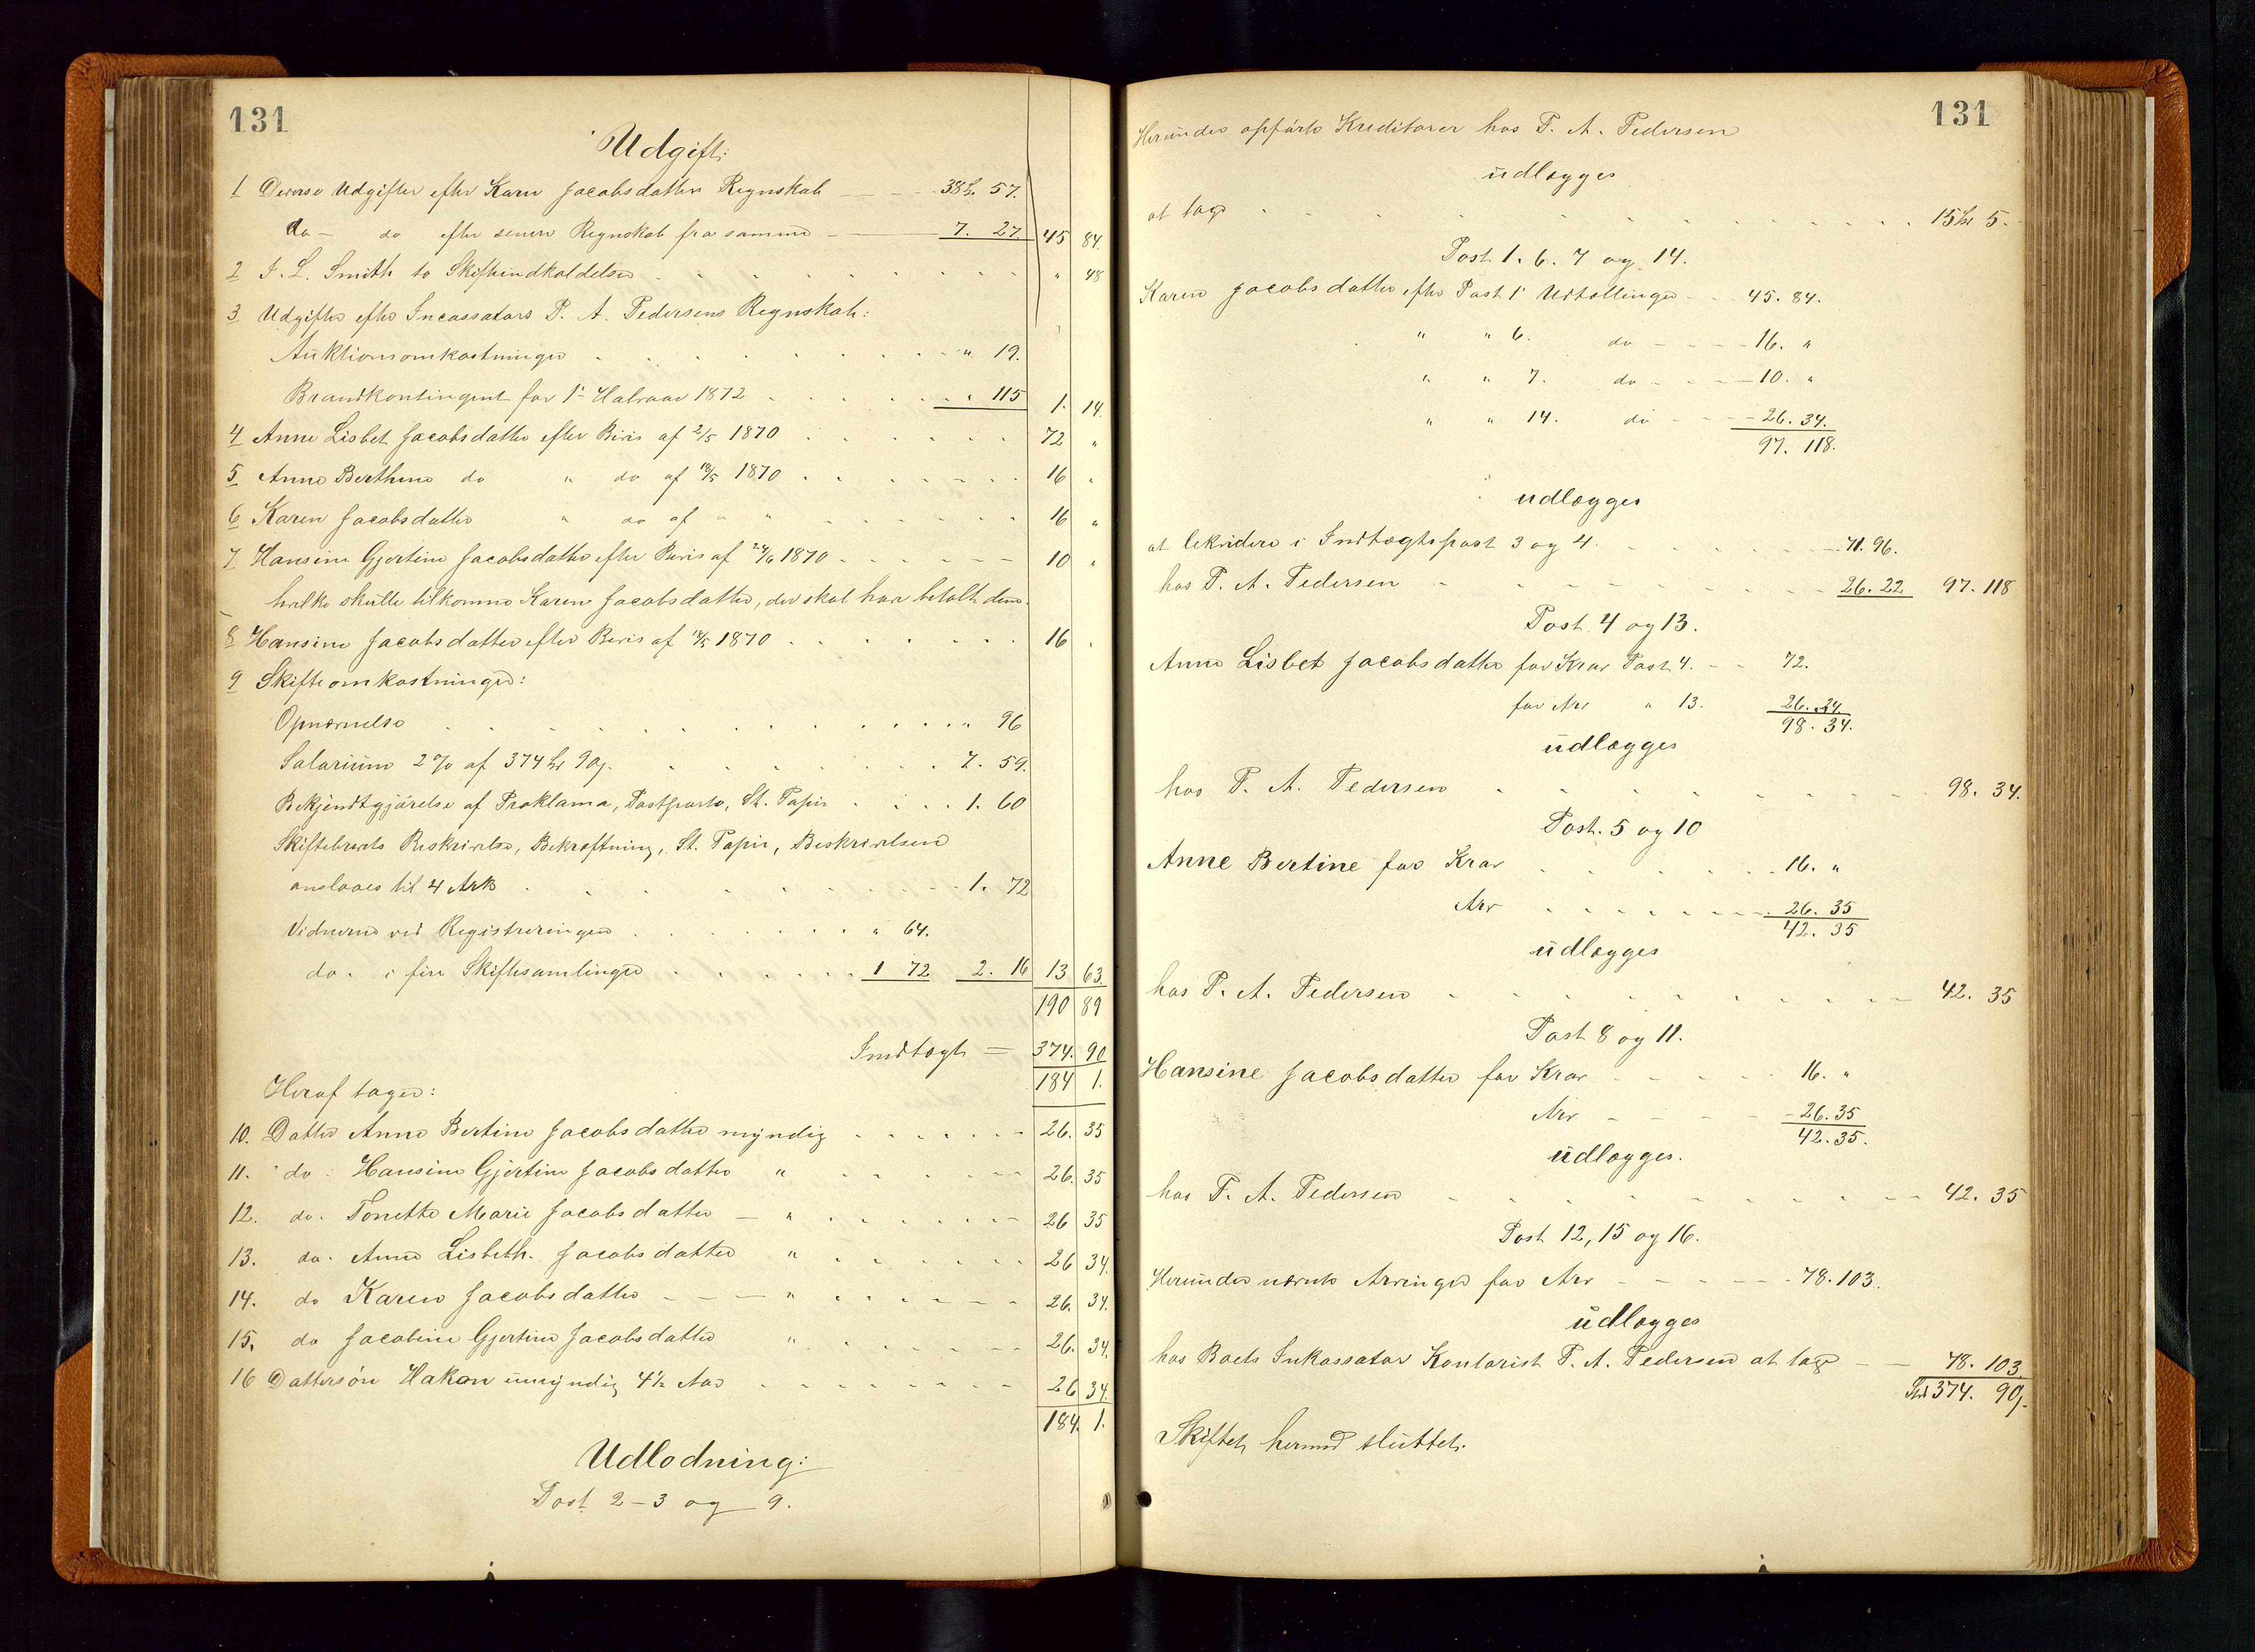 131
Udgift:
1 Diverse Udgifter efter Karen Jacobsdatters Regnskab 38 57.
do - do efter senere Regnskab fra samme 7. 27. 45 84.
2 J. L. Smith to Skifteindkaldelser " 48
3 Udgifter efter Incassators P. A. Pedersens Regnskab:
Auktionsomkostninger " 19.
Brandkontingent for 1ste Halvaar 1872 " 115 1. 14.
4 Anne Lisbet Jacobsdatter efter Bevis af 2/5 1870 72 "
5 Anne Berthine do " do af 18/5 1870 16 "
6 Karen Jacobsdatter " do af " " 16 "
7 Hansine Gjertine Jacobsdatter efter Bevis af 24/6 1870 10 "
hvilke skulle tilkomme Karen Jacobsdatter, der skal have betalt dem.
8 Hansine Jacobsdatter efter Bevis af 18/5 1870 16 "
9 Skifteomkostninger:
Opnævnelse " 96
Salarium 2 % af 374 90 7. 59.
Bekjendtgjørelse af Proklama, Postporto, St. Papir 1. 60
Skiftebrevets Beskrivelse, Bekræftning, St. Papir, Beskrivelsen
anslaaes til 4 Ark 1. 72
Vidnerne ved Registreringen " 64.
do. i fire Skiftesamlinger 1 72 2. 16 13 63.
190 89
Indtægt = 374. 90
184 1.
Heraf tager:
10. Datter Anne Bertine Jacobsdatter myndig 26. 35
11. do. Hansine Gjertine Jacobsdatter " 26. 35
12. do. Tonette Marie Jacobsdatter - " 26 35
13. do. Anne Lisbeth. Jacobsdatter " 26 34.
14. do Karen Jacobsdatter - " 26. 34.
15. do Jacobine Gjertine Jacobsdatter " 26. 34.
16 Dattersøn Hakon umyndig 4½ Aar 26 34.
184. 1.
Udlodning:
Post 2-3 og 9.
131
Herunder opførte Kreditorer hos P. A. Pedersen
udlægges
at tage 15 5.
Post 1. 6. 7 og 14.
Karen Jacobsdatter efter Post 1 Udtællinger 45. 84.
" " 6. do 16. "
" " 7. do 10. "
" " 14. do 26. 34.
97. 118.
udlægges
at likvidere i Indtægtspost 3 og 4. 71. 96.
hos P. A. Pedersen 26. 22 97. 118
Post 4 og 13.
Anne Lisbet Jacobsdatter for Krav Post 4. 72.
for Arv " 13. 26. 34.
98. 34.
udlægges
hos P. A. Pedersen 98. 34.
Post. 5 og 10
Anne Bertine for Krav 16. "
Arv 26. 35
42. 35
udlægges
hos P. A. Pedersen 42. 35
Post 8 og 11.
Hansine Jacobsdatter for Krav 16. "
Arv 26. 35
42. 35.
udlægges.
hos P. A. Pedersen 42. 35
Post 12, 15 og 16.
Herunder nævnte Arvinger for Arv 78. 103.
udlægges
hos Boets Inkassator Kontorist P. A. Pedersen at tage 78. 103.
374. 90
Skiftet hermed sluttet.